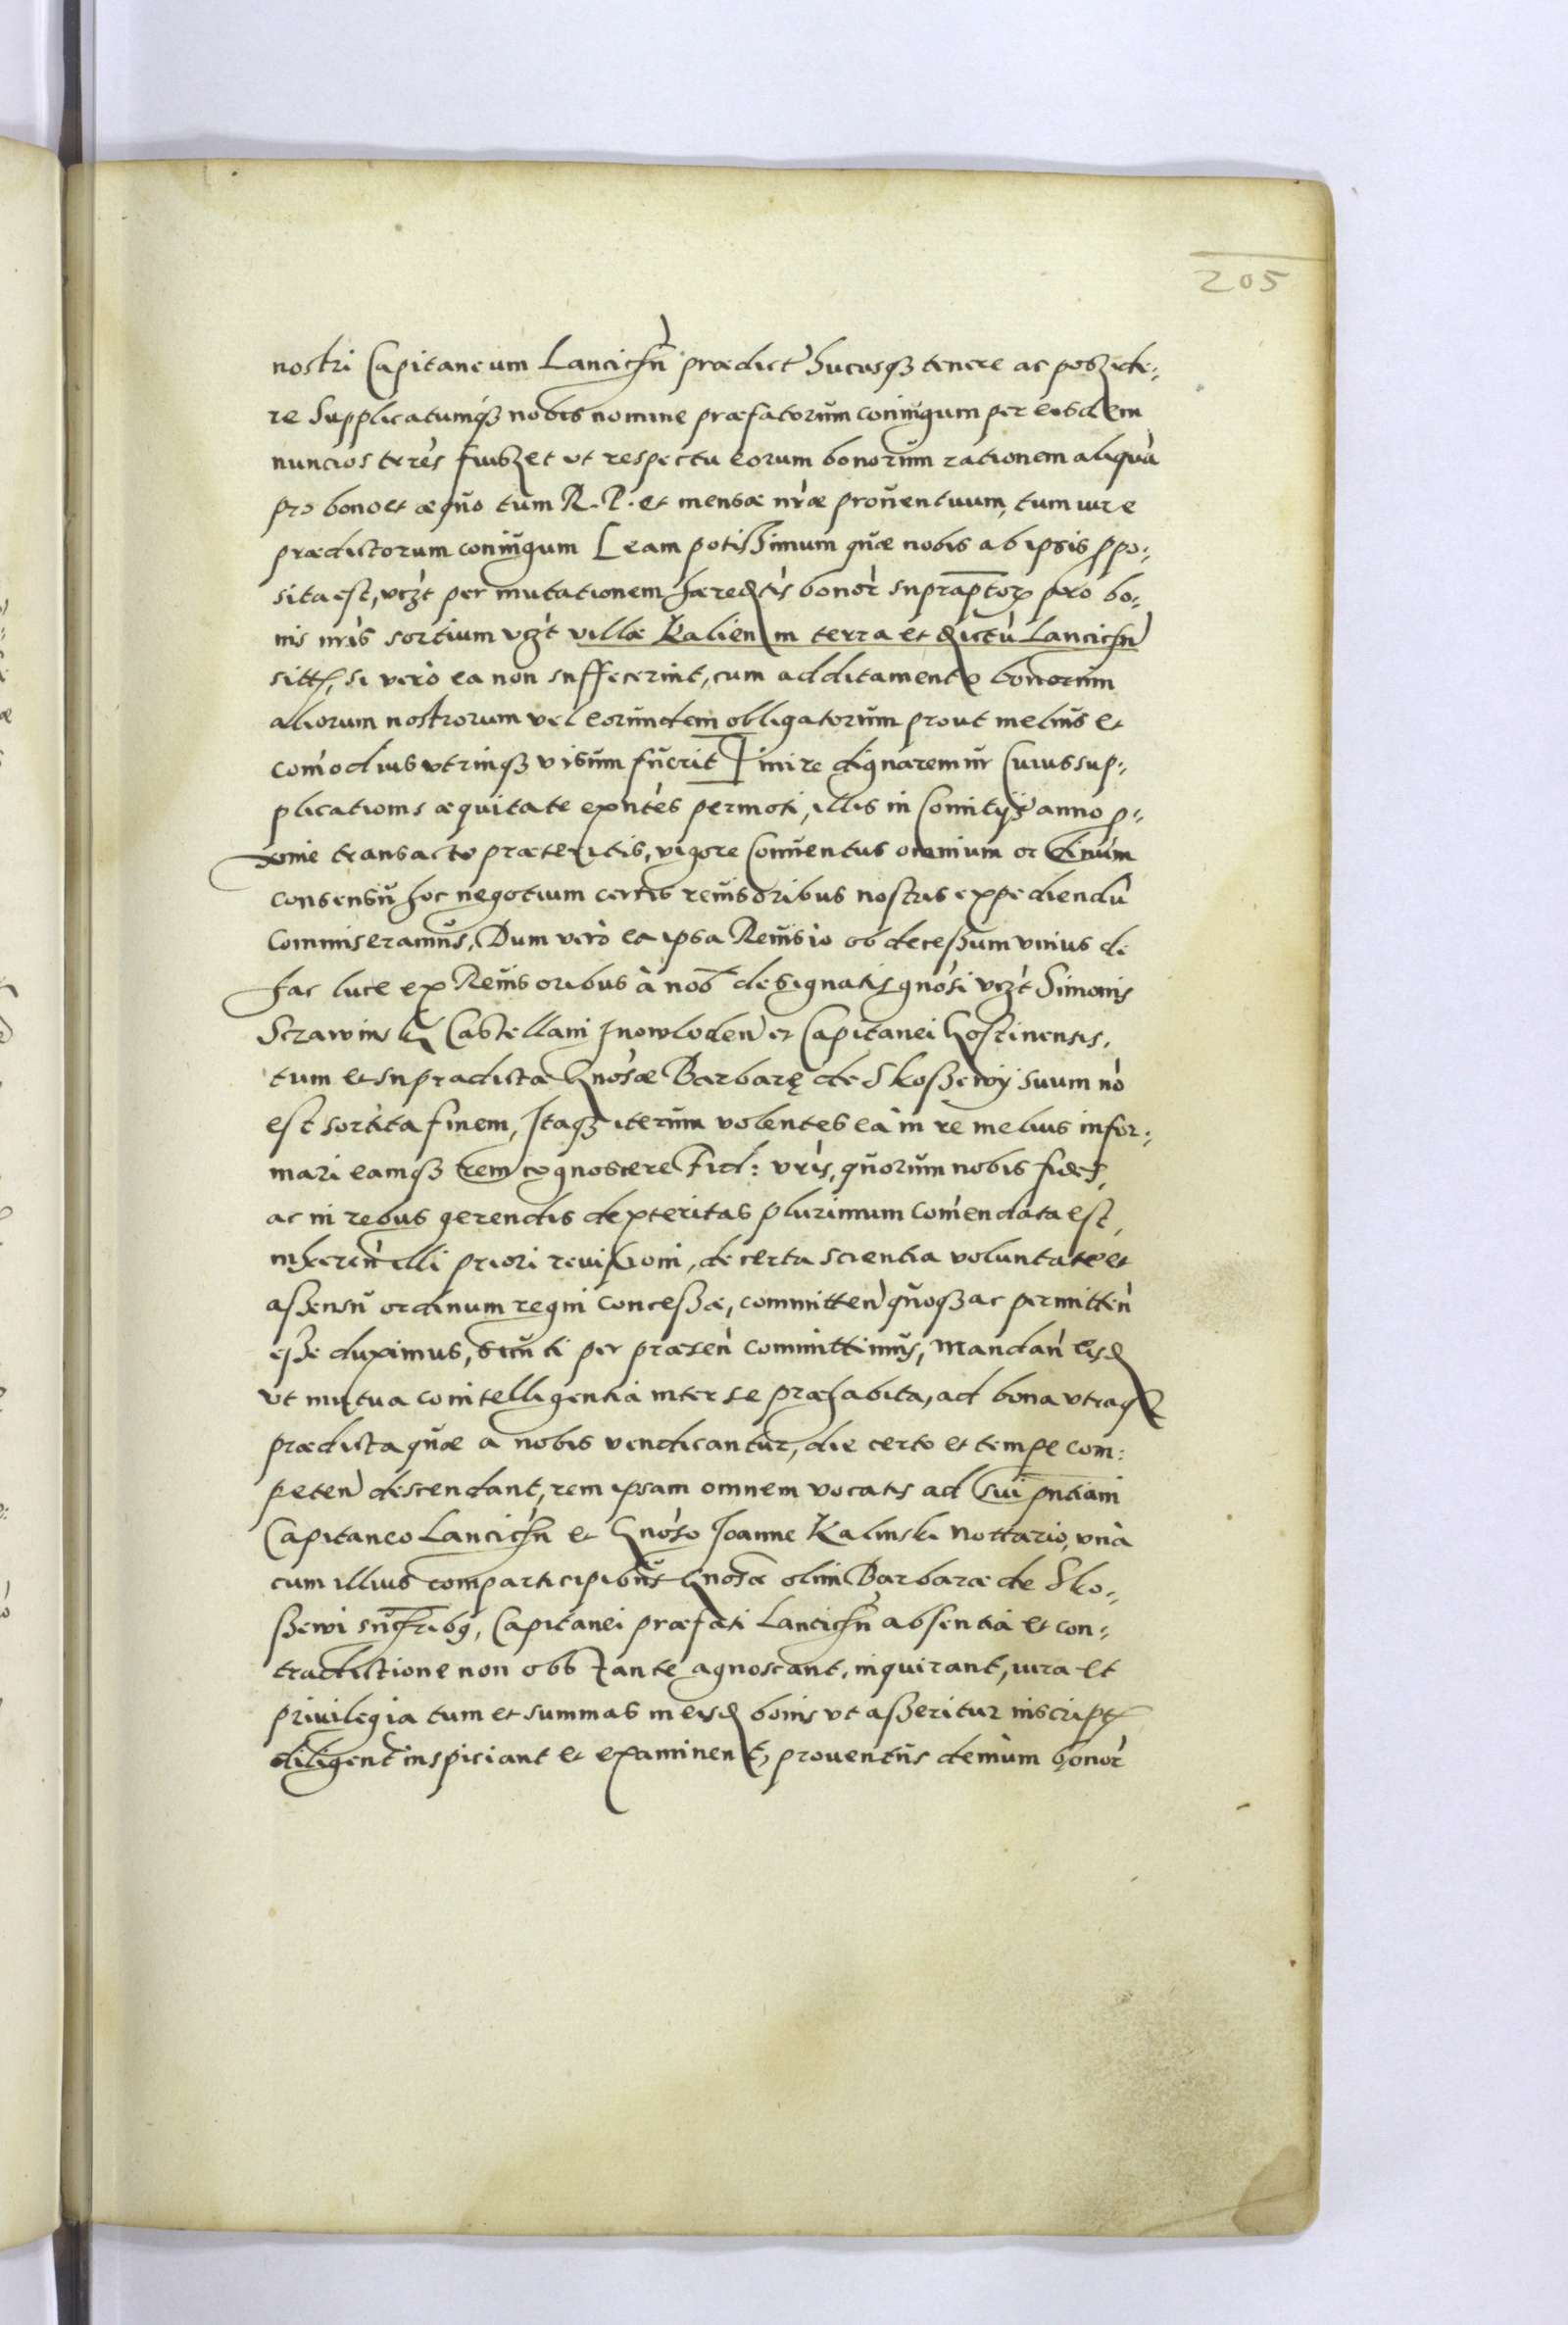 205
nostri Capitaneum Lancicn̄ prædict' hucusqȝ tenere ac poszide⸗
re Supplicatumqȝ nobis nomine præfatorum coniugum per eosdem
nuncios terēs fuiszet ut respectu eorum bonorum rationem aliquā
pro bono et æquo tum R. P. et mensæ nræ prouentuum, tum iure
prædictorum coniugum [eam potiszimum quæ nobis ab ipsis ppo⸗
sita est, vcȝt per mutationem hæreditis bonor supraptor pro bo⸗
nis nris sortium vcȝt villæ Kalien in terra et dictu Lancicn̄
sitt, si verò ea non suffecerint, cum additamento bonorum
aliorum nostrorum vel eorundem obligatorum prout melius et
comodius vtrinqȝ visum fuerit] inire dignaremur Cuius sup⸗
plicationis æquitate exntes permoti, illis in Comitijs anno p⸗
xime transacto præteritis, vigore Conuentus omnium ordinum
consensu hoc negotium certis reuisoribus nostris expediendū
Commiseramus, Dum verò ea ipsa Reuisio ob deceszum vnius de
hac luce ex Reuisoribus à nob designatis gnosi vcȝt Simonis
Strawinski Castellani Inowloden et Capitanei Gostinensis,
tum et supradictæ Gnosæ Barbarę de Skoszewy suum nō
est sortita finem, Itaqȝ iterum volentes ea in re melius infor⸗
mari eamqȝ rem cognoscere Fid: vris, quorum nobis fides,
ac in rebus gerendis dexteritas plurimum comendata est,
inhæren illi priori reuisioni, de certa scientia voluntate et
aszensu ordinum regni conceszæ, committen quoqȝ ac permitten
esze duximus, sicuti per præsen committimus, Mandan eisd
vt mutua cointelligentia inter se præhabita, ad bona vtraqȝ
prædicta quæ a nobis vendicantur, die certo et tempe com⸗
peten descendant, rem ipsam omnem vocatis ad sui pntiam
Capitaneo Lancicn̄ et Gnoso Joanne Kalinski Nottario, vnà
cum illius comparticipibus Gnosæ olim Barbaræ de Sko⸗
szewi succribȝ, Capitanei præfati Lancicn̄ absentia et con⸗
tradictione non obstante agnoscant, inquirant, iura et
priuilegia tum et summas in eisd bonis vt aszeritur inscript
diligent inspiciant et examinent, prouentus demum bonor